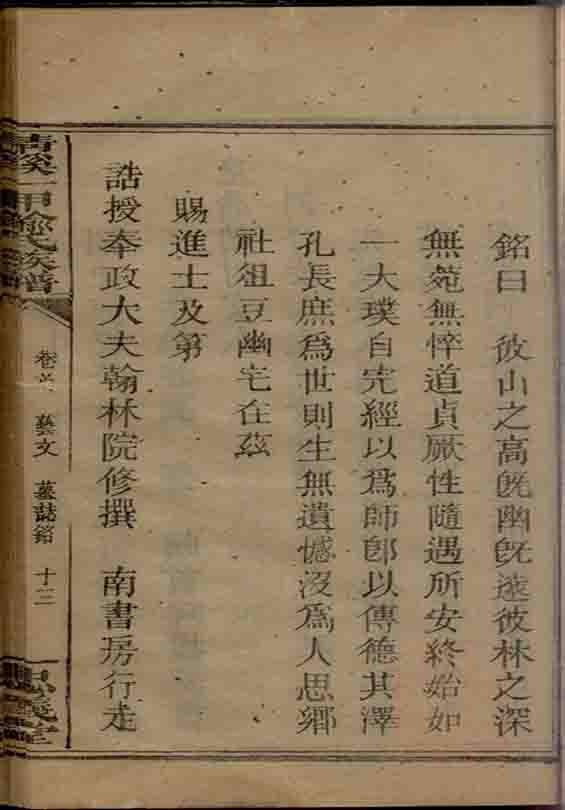 銘曰 彼山之高既幽既遠彼林之深
無菀無悴道貞厥性隨遇所安終始如
一大璞自完經以爲師郎以傳德其澤
孔長庶爲世則生無遺憾沒爲人思鄉
社俎豆幽宅在茲
賜進士及第
誥授奉政大夫翰林院修撰 南書房行走
溪一甲 氏族譜
卷 藝文 墓誌銘 十三
義堂